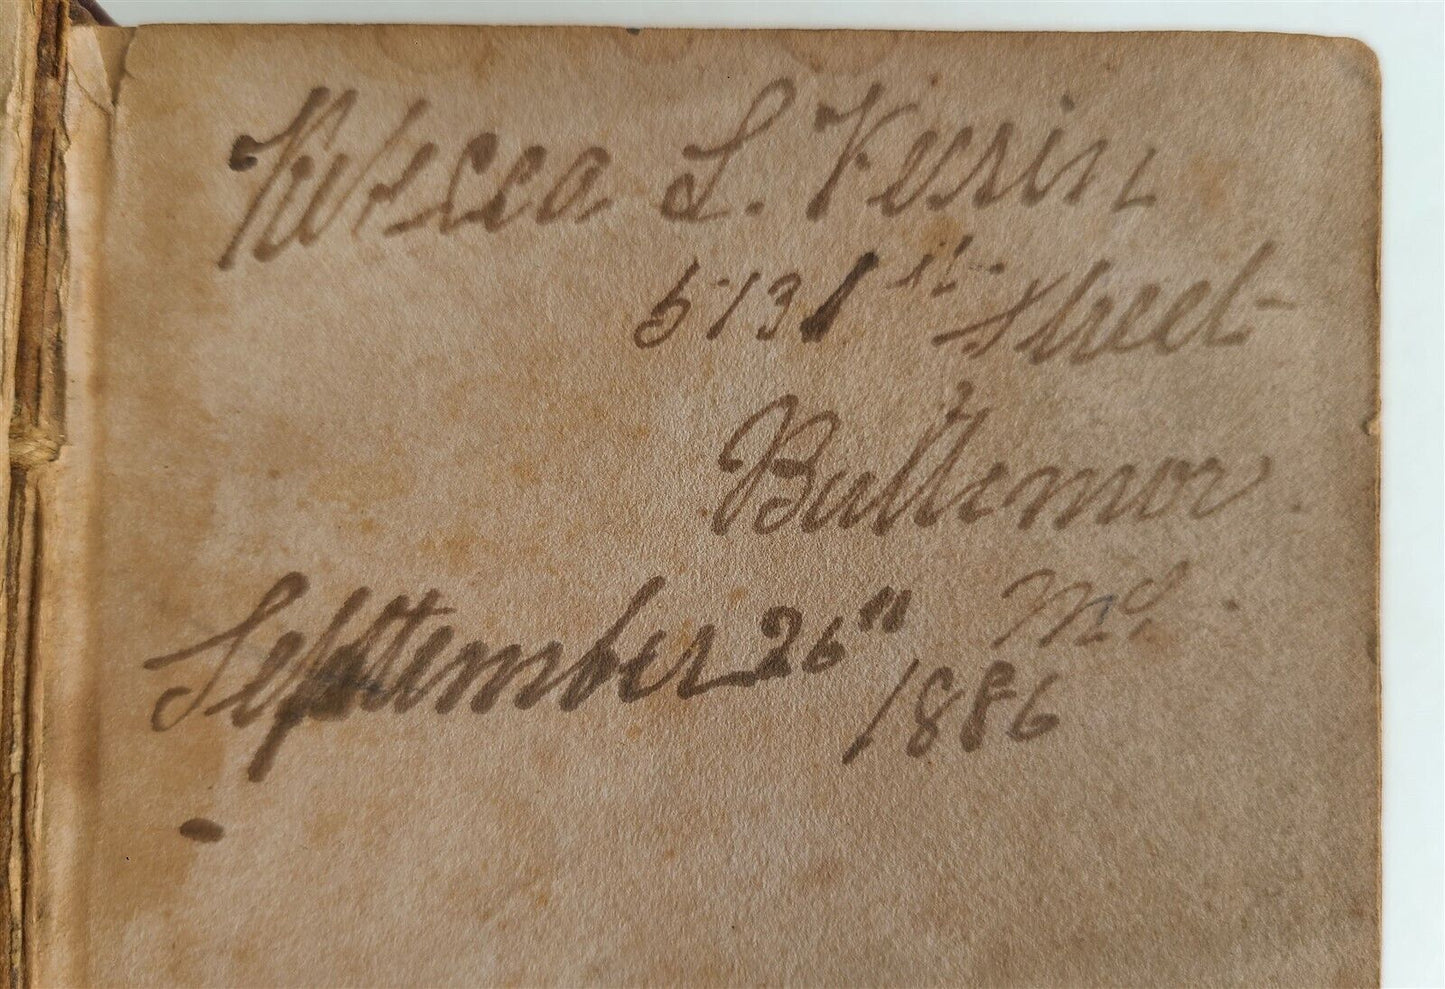 Rebecca L. Kusin
5131st Street
Baltemor.
Md.
September 26"
1886